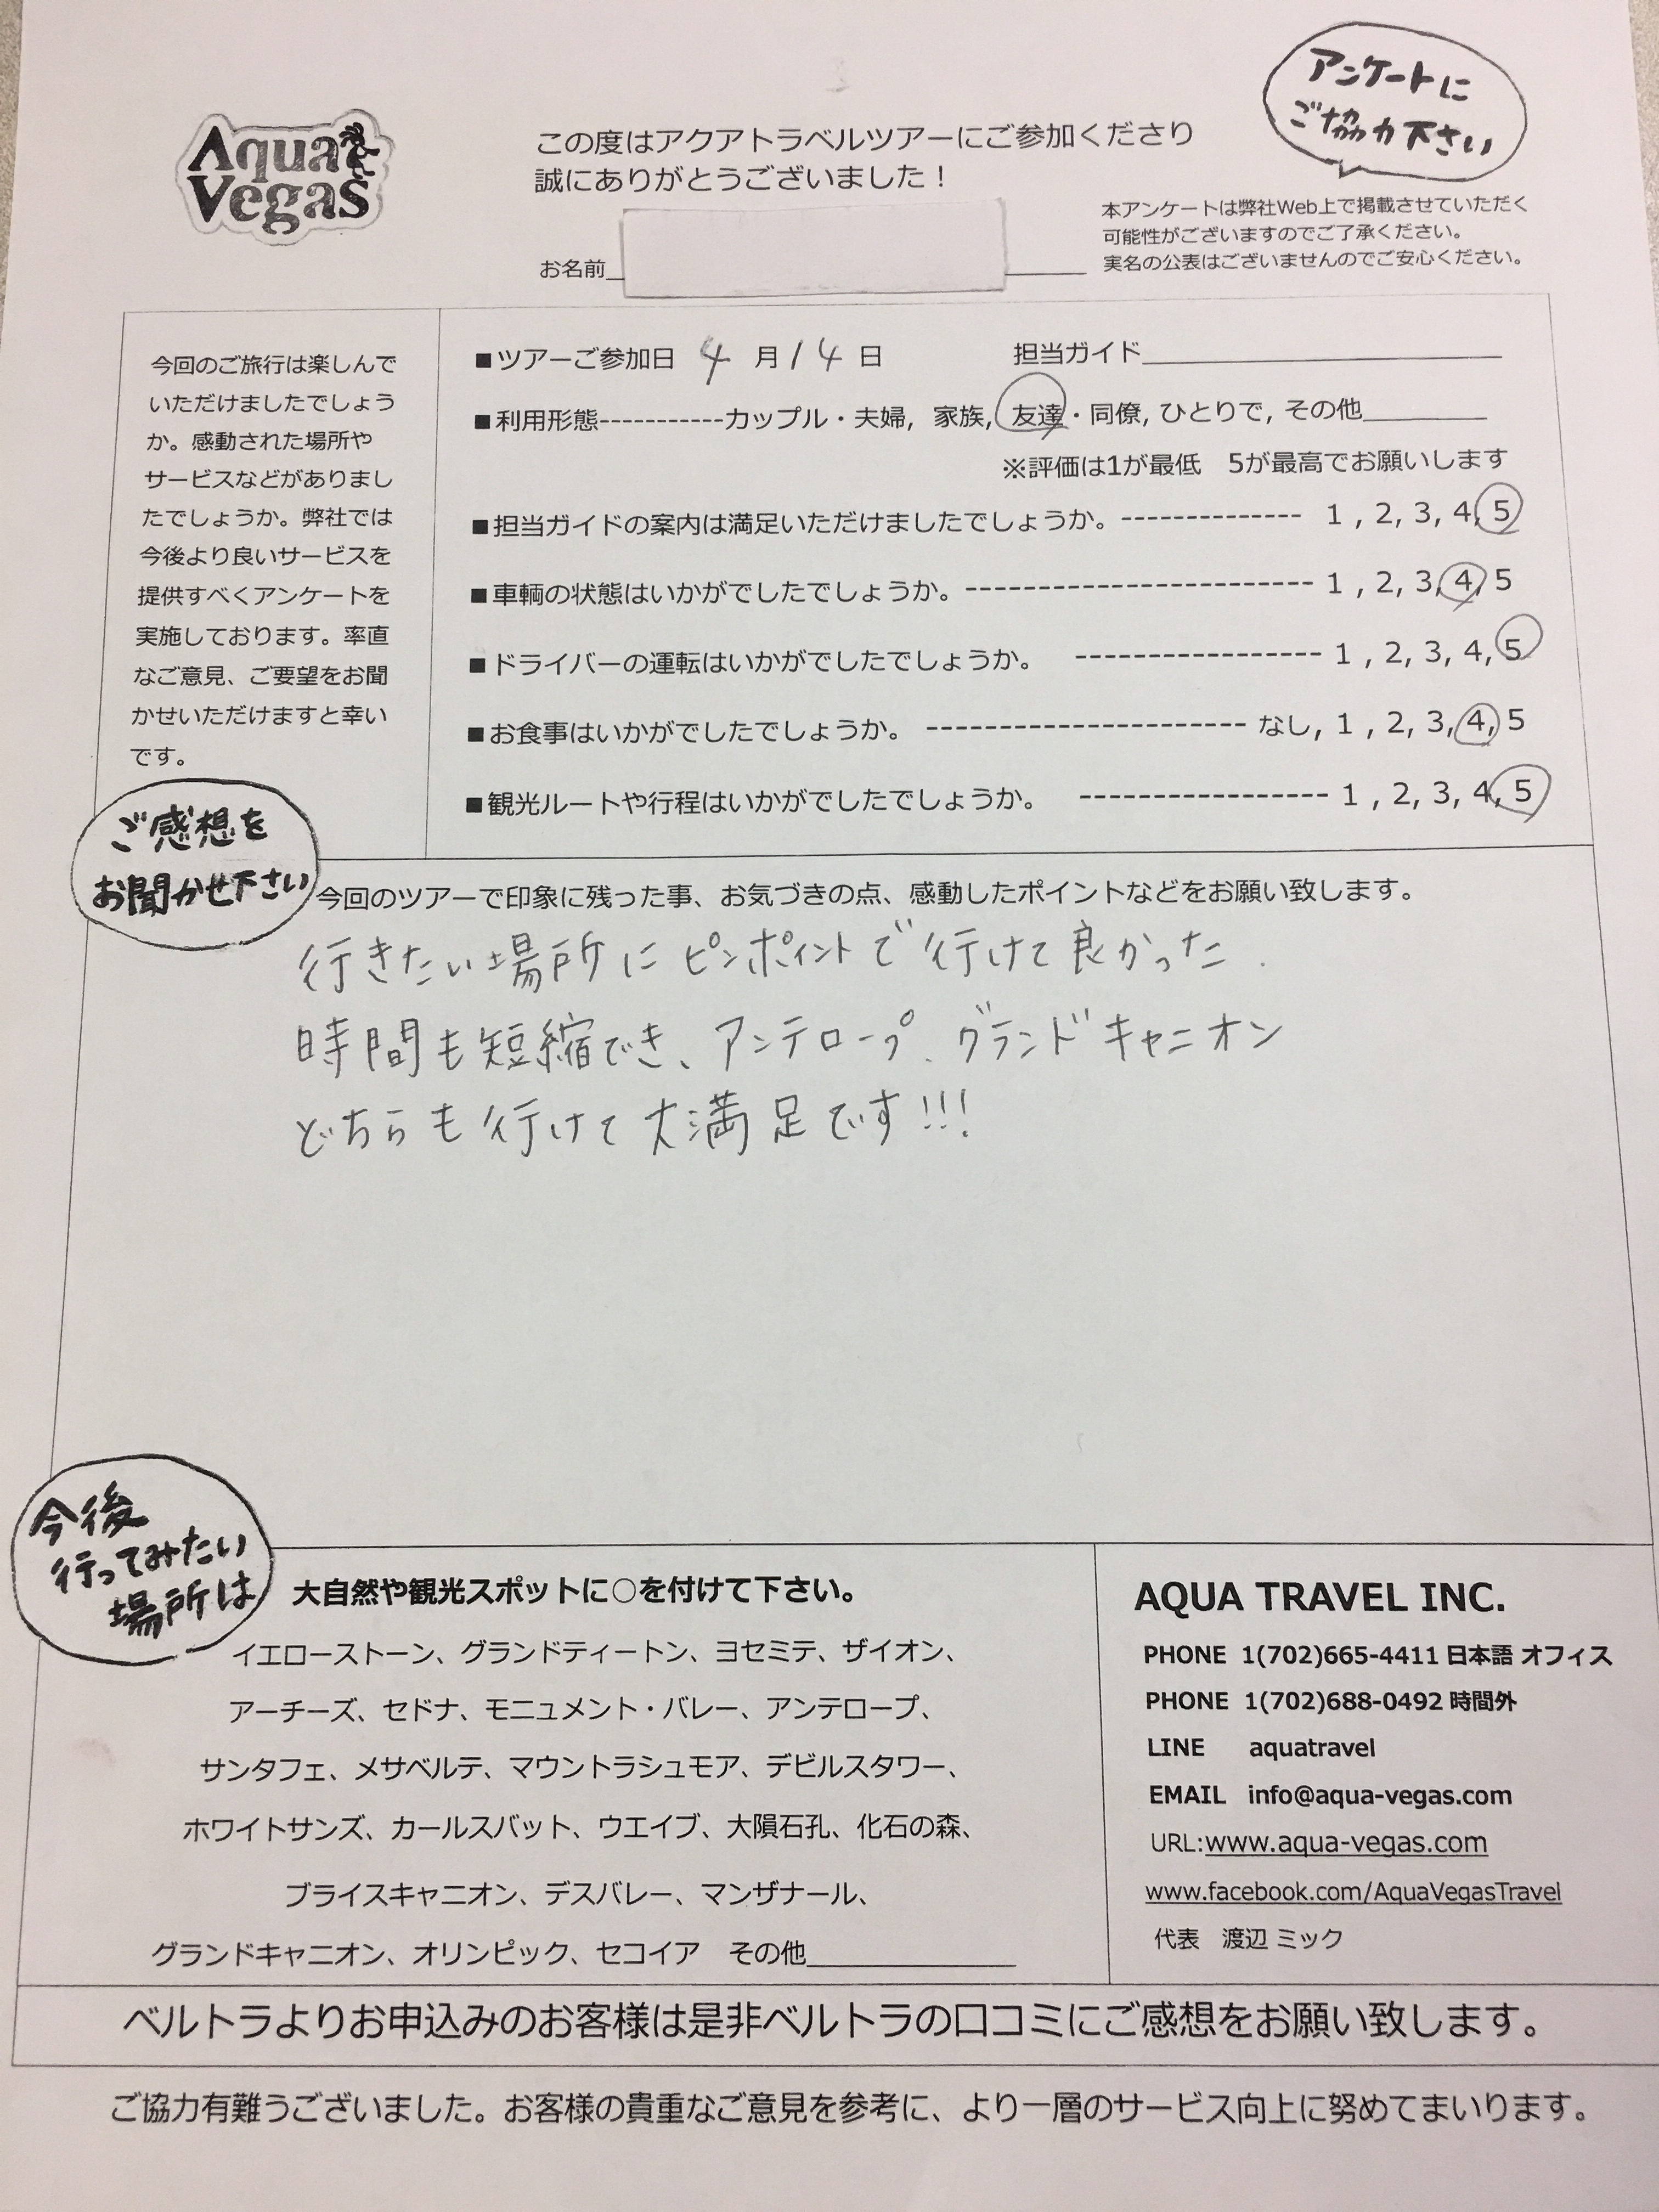 Aqua
Vegas
この度はアクアトラベルツアーにご参加くださり
誠にありがとうございました！
アンケートに
ご協力下さい
本アンケートは弊社Web上で掲載させていただく
可能性がございますのでご了承ください。
実名の公表はございませんのでご安心ください。
お名前
今回のご旅行は楽しんで
いただけましたでしょう
か。感動された場所や
サービスなどがありまし
たでしょうか。弊社では
今後より良いサービスを
提供すべくアンケートを
実施しております。率直
なご意見、ご要望をお聞
かせいただけますと幸い
です。
■ツアーご参加日 4 月 14 日 担当ガイド
■利用形態-----------カップル・夫婦, 家族, 友達・同僚, ひとりで, その他
※評価は1が最低 5が最高でお願いします
■担当ガイドの案内は満足いただけましたでしょうか。------------- 1 , 2, 3, 4, 5
■車輌の状態はいかがでしたでしょうか。------------------------- 1 , 2, 3, 4, 5
■ドライバーの運転はいかがでしたでしょうか。 ------------------ 1 , 2, 3, 4, 5
■お食事はいかがでしたでしょうか。 ----------------------- なし, 1 , 2, 3, 4, 5
■観光ルートや行程はいかがでしたでしょうか。 ------------------ 1 , 2, 3, 4, 5
ご感想を
お聞かせ下さい
今回のツアーで印象に残った事、お気づきの点、感動したポイントなどをお願い致します。
行きたい場所にピンポイントで行けて良かった.
時間も短縮でき、アンテロープ、グランドキャニオン
どちらも行けて大満足です!!!
今後
行ってみたい
場所は
大自然や観光スポットに○を付けて下さい。
イエローストーン、グランドティートン、ヨセミテ、ザイオン、
アーチーズ、セドナ、モニュメント・バレー、アンテロープ、
サンタフェ、メサベルテ、マウントラシュモア、デビルスタワー、
ホワイトサンズ、カールスバット、ウエイブ、大隕石孔、化石の森、
ブライスキャニオン、デスバレー、マンザナール、
グランドキャニオン、オリンピック、セコイア その他
AQUA TRAVEL INC.
PHONE 1(702)665-4411 日本語 オフィス
PHONE 1(702)688-0492 時間外
LINE aquatravel
EMAIL info@aqua-vegas.com
URL:www.aqua-vegas.com
www.facebook.com/AquaVegasTravel
代表 渡辺 ミック
ベルトラよりお申込みのお客様は是非ベルトラの口コミにご感想をお願い致します。
ご協力有難うございました。お客様の貴重なご意見を参考に、より一層のサービス向上に努めてまいります。